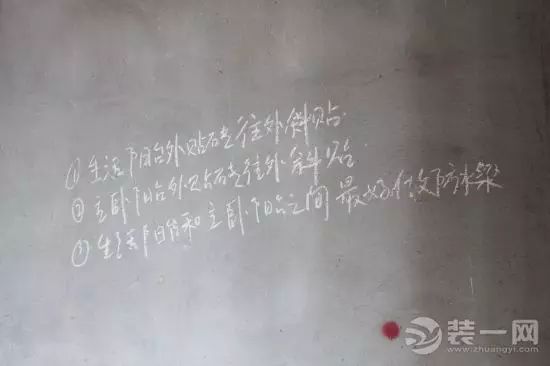 ①生活阳台外贴砖往外斜贴.
②主卧阳台外贴砖往外斜贴.
③生活阳台和主卧阳台之间最好做防水梁
装一网
www.zhuangyi.com